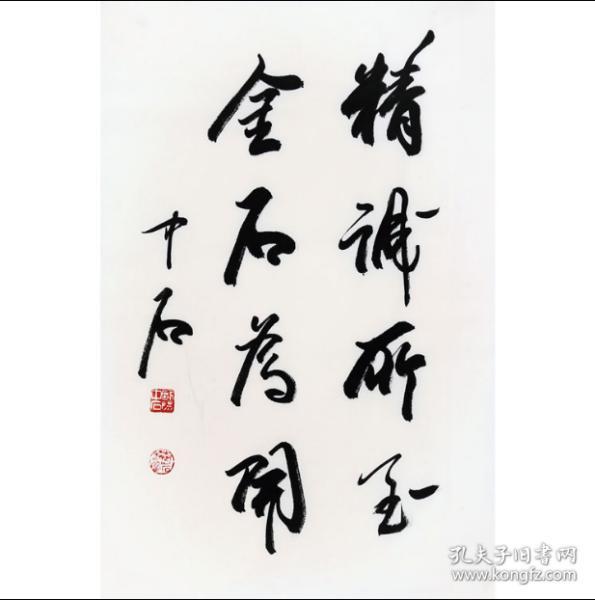 精诚所至
金石為開
中石
孔夫子旧书网
www.kongfz.com